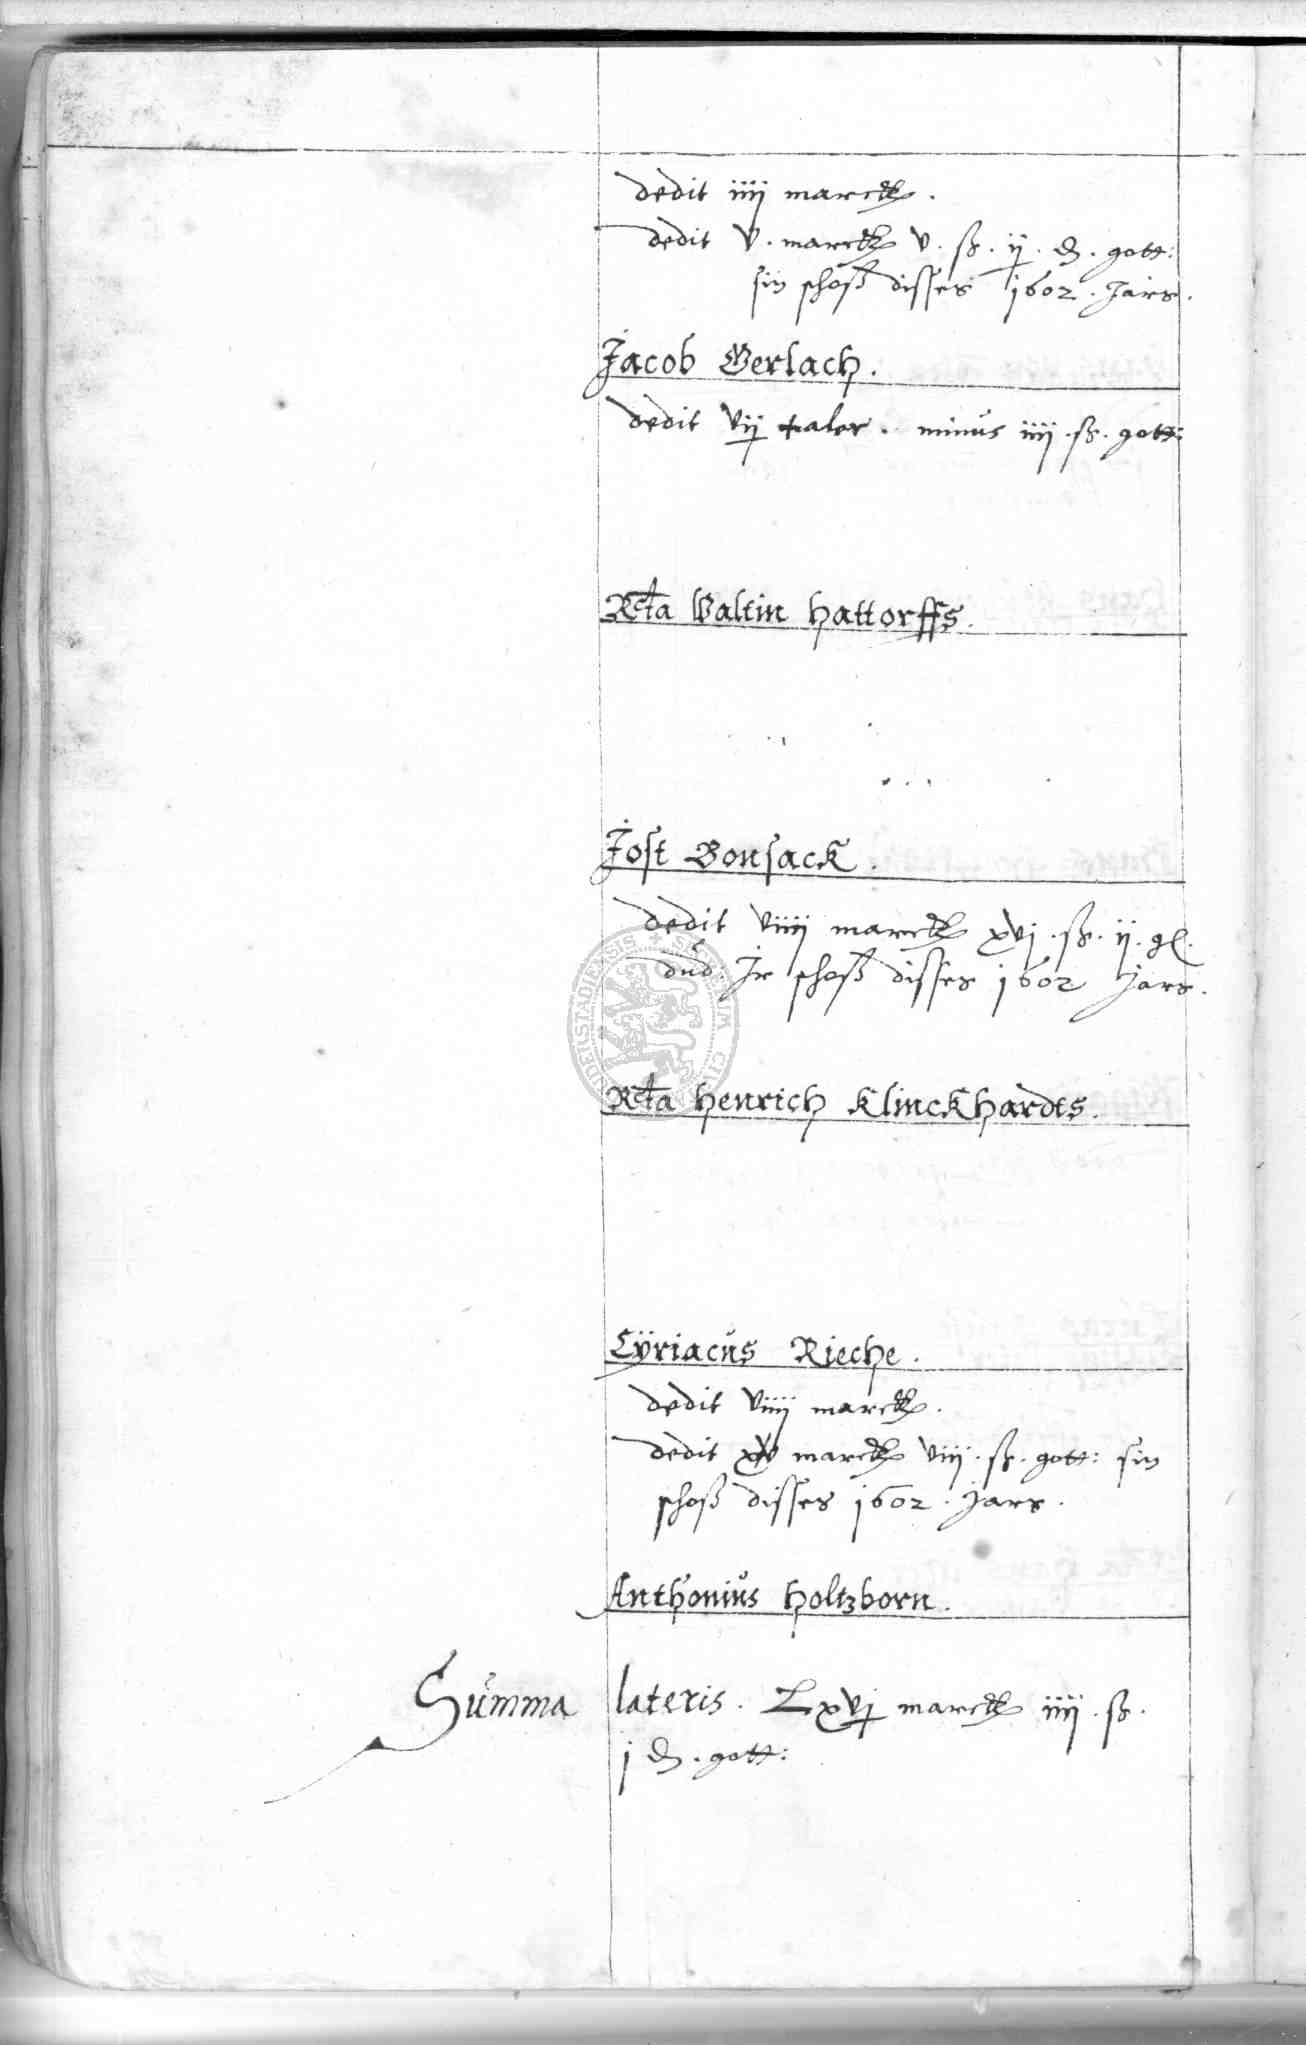 dedit iiij marck.
dedit v. marck v. ß. ij. d. gott:
sin schoß disses 1602. Jars.
Jacob Gerlach.
dedit vij taler. minus iiij. ß. gott:
Rcta Valtin Hattorffs.
Jost Bonsack.
dedit viiij marck xvj. ß. ij. gl.
dud. Jr schoß disses 1602 Jars.
Rcta Henrich Klinckhardts.
Cÿriacus Rieche.
dedit viiij marck.
dedit xv marck viij. ß. gott: sin
schoß disses 1602. Jars.
Anthonius Holtzborn.
Summa lateris. Lxvj marck iiij. ß.
j d. gott: